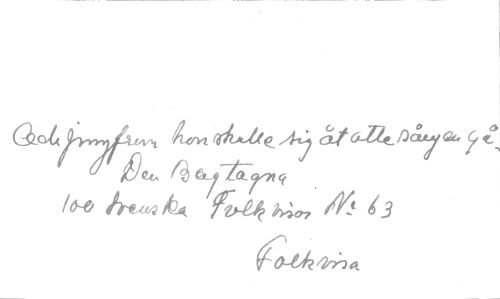 Och jungfrun hon skulle sig åt ottesången gå.
Den Bergtagna
100 Svenska Folkvisor No 63
Folkvisa